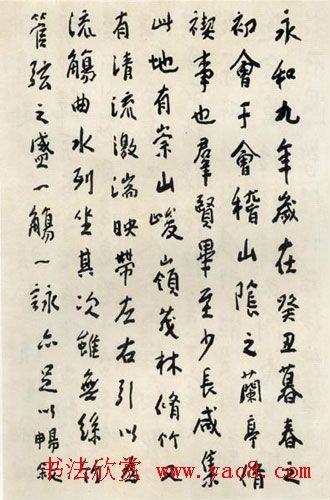 永和九年歲在癸丑暮春之
初會于會稽山陰之蘭亭脩
禊事也羣賢畢至少長咸集
此地有崇山峻嶺茂林脩竹又
有清流激湍映帶左右引以
流觴曲水列坐其次雖無絲竹
管弦之盛一觴一詠亦足以暢敘
书法欣赏 www.yac8.com